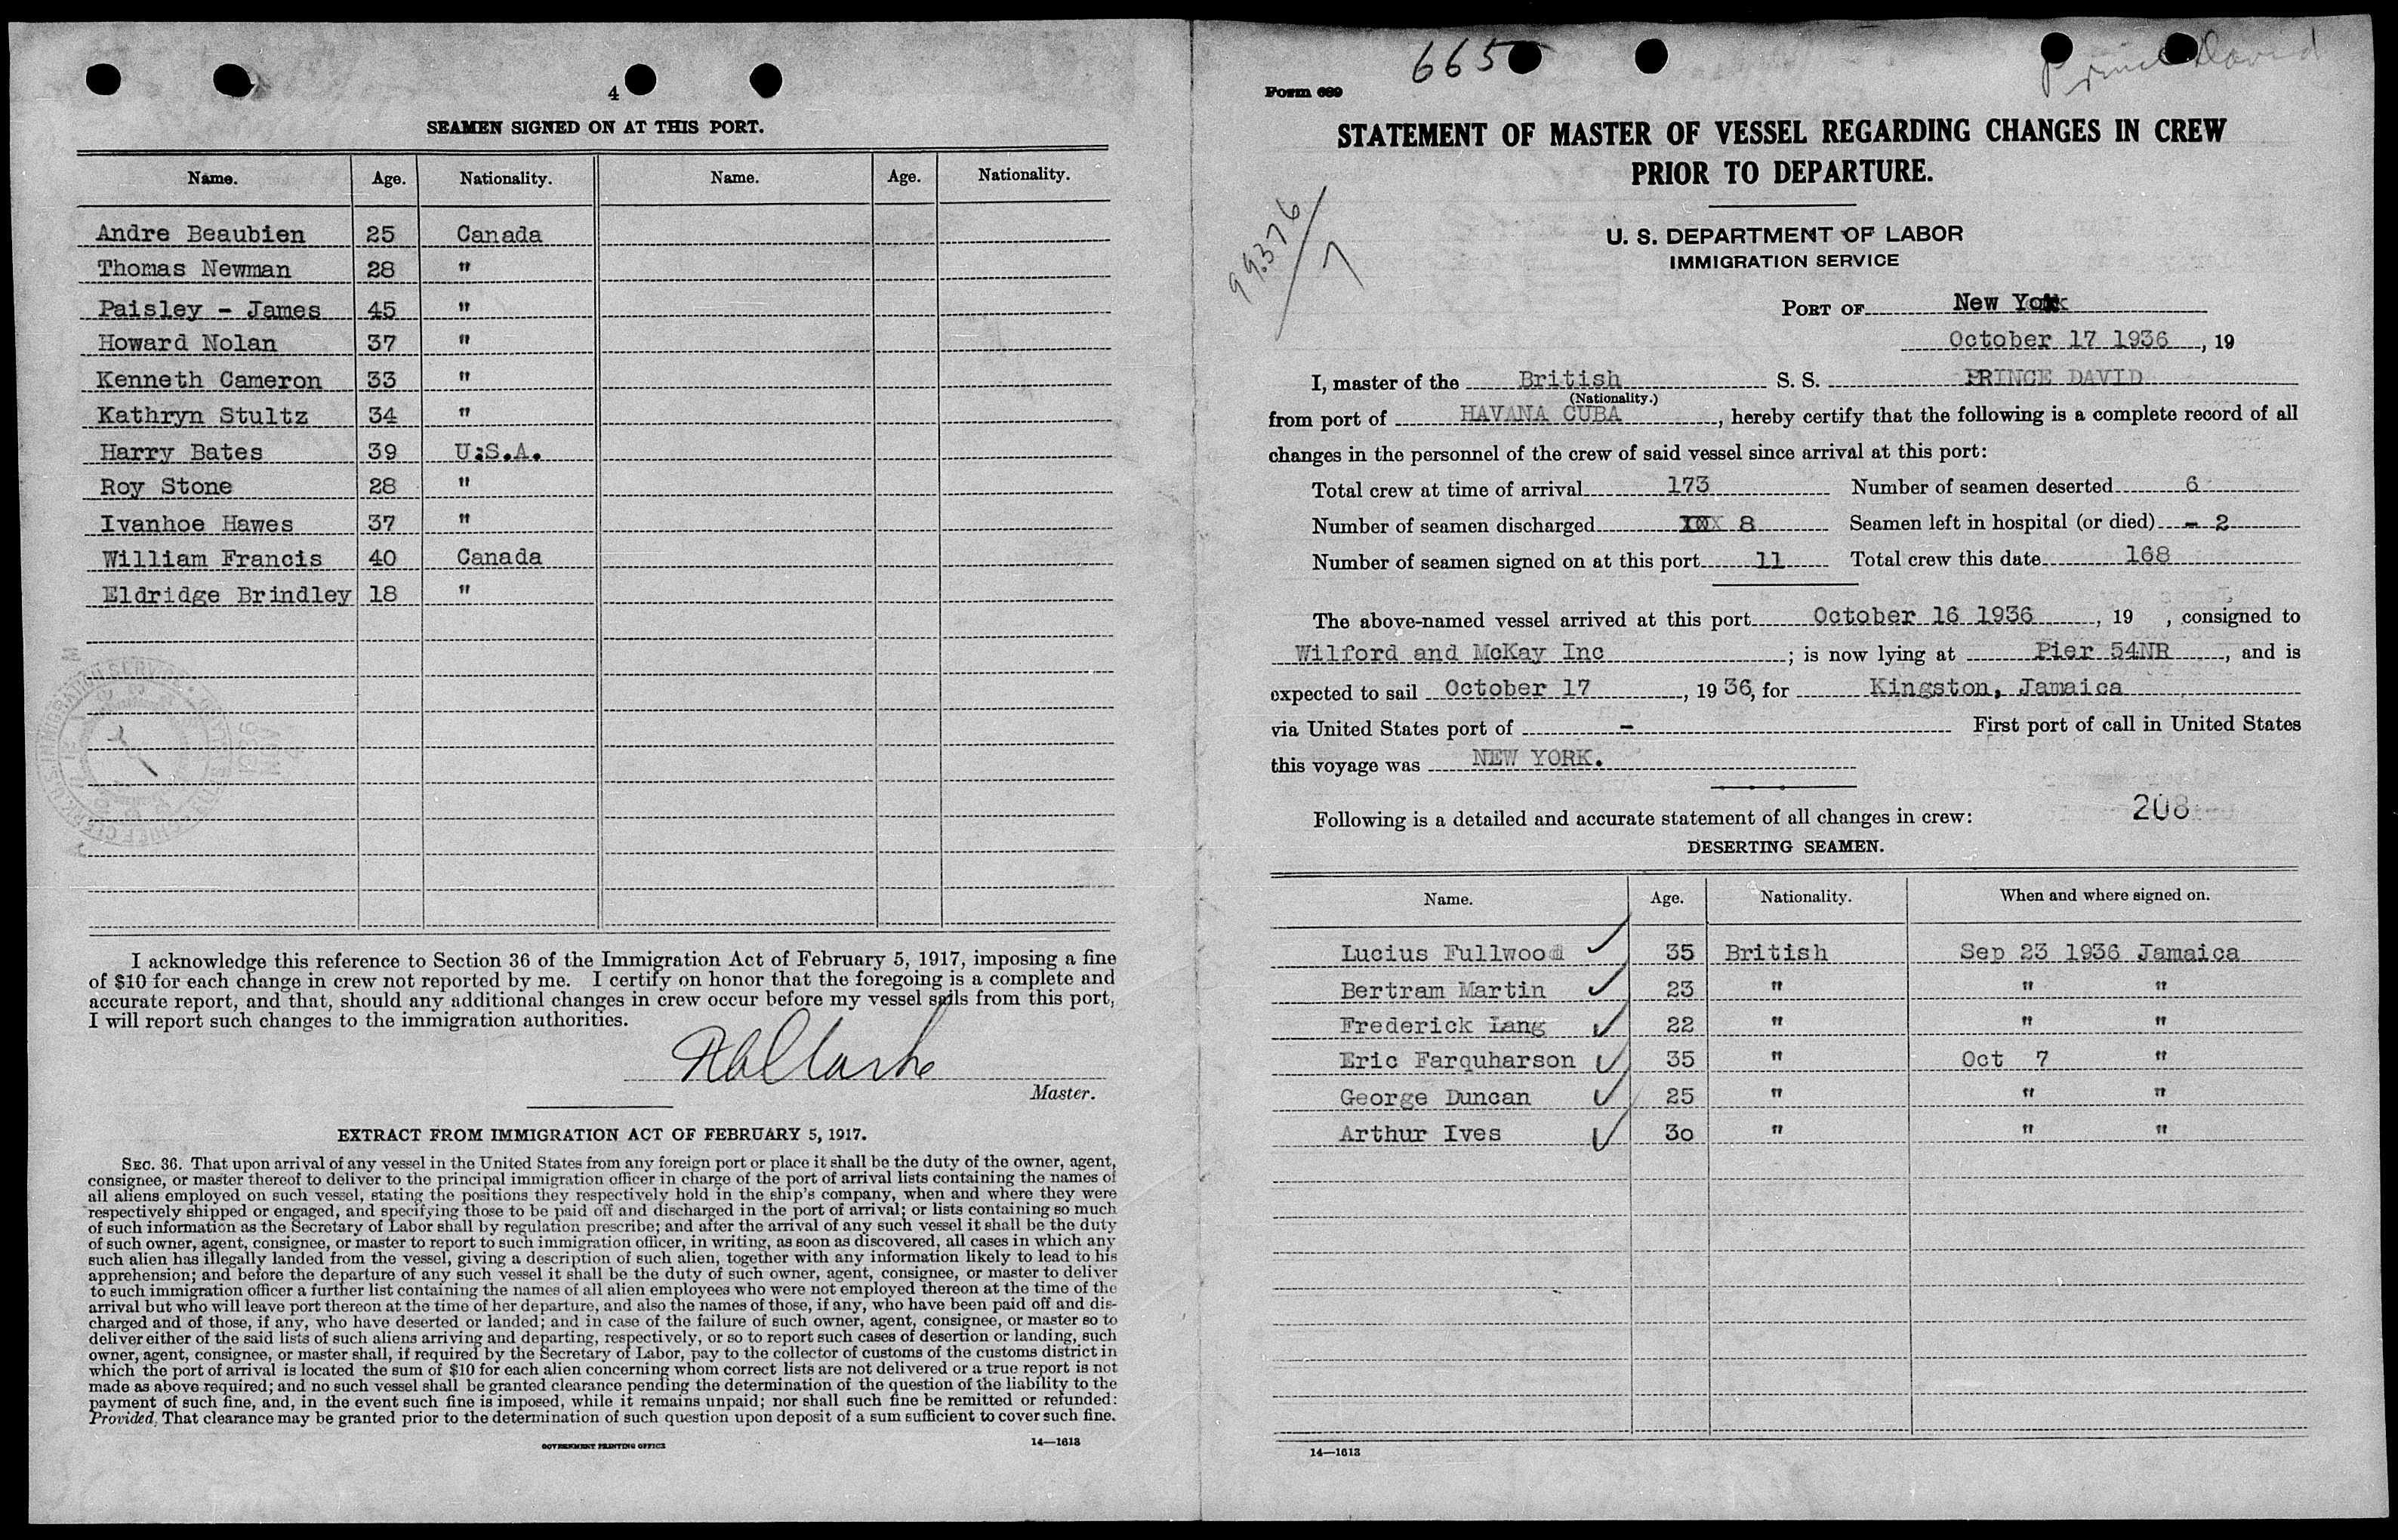 4
SEAMEN SIGNED ON AT THIS PORT.
Name. Age. Nationality. Name. Age. Nationality.
Andre Beaubien 25 Canada
Thomas Newman 28 "
Paisley - James 45 "
Howard Nolan 37 "
Kenneth Cameron 33 "
Kathryn Stultz 34 "
Harry Bates 39 U:S.A.
Roy Stone 28 "
Ivanhoe Hawes 37 "
William Francis 40 Canada
Eldridge Brindley 18 "
I acknowledge this reference to Section 36 of the Immigration Act of February 5, 1917, imposing a fine
of $10 for each change in crew not reported by me. I certify on honor that the foregoing is a complete and
accurate report, and that, should any additional changes in crew occur before my vessel sails from this port,
I will report such changes to the immigration authorities.
Master.
EXTRACT FROM IMMIGRATION ACT OF FEBRUARY 5, 1917.
SEC. 36. That upon arrival of any vessel in the United States from any foreign port or place it shall be the duty of the owner, agent,
consignee, or master thereof to deliver to the principal immigration officer in charge of the port of arrival lists containing the names of
all aliens employed on such vessel, stating the positions they respectively hold in the ship's company, when and where they were
respectively shipped or engaged, and specifying those to be paid off and discharged in the port of arrival; or lists containing so much
of such information as the Secretary of Labor shall by regulation prescribe; and after the arrival of any such vessel it shall be the duty
of such owner, agent, consignee, or master to report to such immigration officer, in writing, as soon as discovered, all cases in which any
such alien has illegally landed from the vessel, giving a description of such alien, together with any information likely to lead to his
apprehension; and before the departure of any such vessel it shall be the duty of such owner, agent, consignee, or master to deliver
to such immigration officer a further list containing the names of all alien employees who were not employed thereon at the time of the
arrival but who will leave port thereon at the time of her departure, and also the names of those, if any, who have been paid off and dis-
charged and of those, if any, who have deserted or landed; and in case of the failure of such owner, agent, consignee, or master so to
deliver either of the said lists of such aliens arriving and departing, respectively, or so to report such cases of desertion or landing, such
owner, agent, consignee, or master shall, if required by the Secretary of Labor, pay to the collector of customs of the customs district in
which the port of arrival is located the sum of $10 for each alien concerning whom correct lists are not delivered or a true report is not
made as above required; and no such vessel shall be granted clearance pending the determination of the question of the liability to the
payment of such fine, and, in the event such fine is imposed, while it remains unpaid; nor shall such fine be remitted or refunded:
Provided, That clearance may be granted prior to the determination of such question upon deposit of a sum sufficient to cover such fine.
GOVERNMENT PRINTING OFFICE 14—1613
665 Prince David
Form 689
STATEMENT OF MASTER OF VESSEL REGARDING CHANGES IN CREW
PRIOR TO DEPARTURE.
99376/7
U. S. DEPARTMENT OF LABOR
IMMIGRATION SERVICE
PORT OF New York
October 17 1936, 19
I, master of the British S. S. PRINCE DAVID
(Nationality.)
from port of HAVANA CUBA, hereby certify that the following is a complete record of all
changes in the personnel of the crew of said vessel since arrival at this port:
Total crew at time of arrival 173 Number of seamen deserted 6
Number of seamen discharged 8 Seamen left in hospital (or died) - 2
Number of seamen signed on at this port 11 Total crew this date 168
The above-named vessel arrived at this port October 16 1936, 19 , consigned to
Wilford and McKay Inc; is now lying at Pier 54NR, and is
expected to sail October 17, 1936, for Kingston, Jamaica
via United States port of - First port of call in United States
this voyage was NEW YORK.
208
Following is a detailed and accurate statement of all changes in crew:
DESERTING SEAMEN.
Name. Age. Nationality. When and where signed on.
Lucius Fullwood ✓ 35 British Sep 23 1936 Jamaica
Bertram Martin ✓ 23 " " "
Frederick Lang ✓ 22 " " "
Eric Farquharson ✓ 35 " Oct 7 "
George Duncan ✓ 25 " " "
Arthur Ives ✓ 30 " " "
14—1613